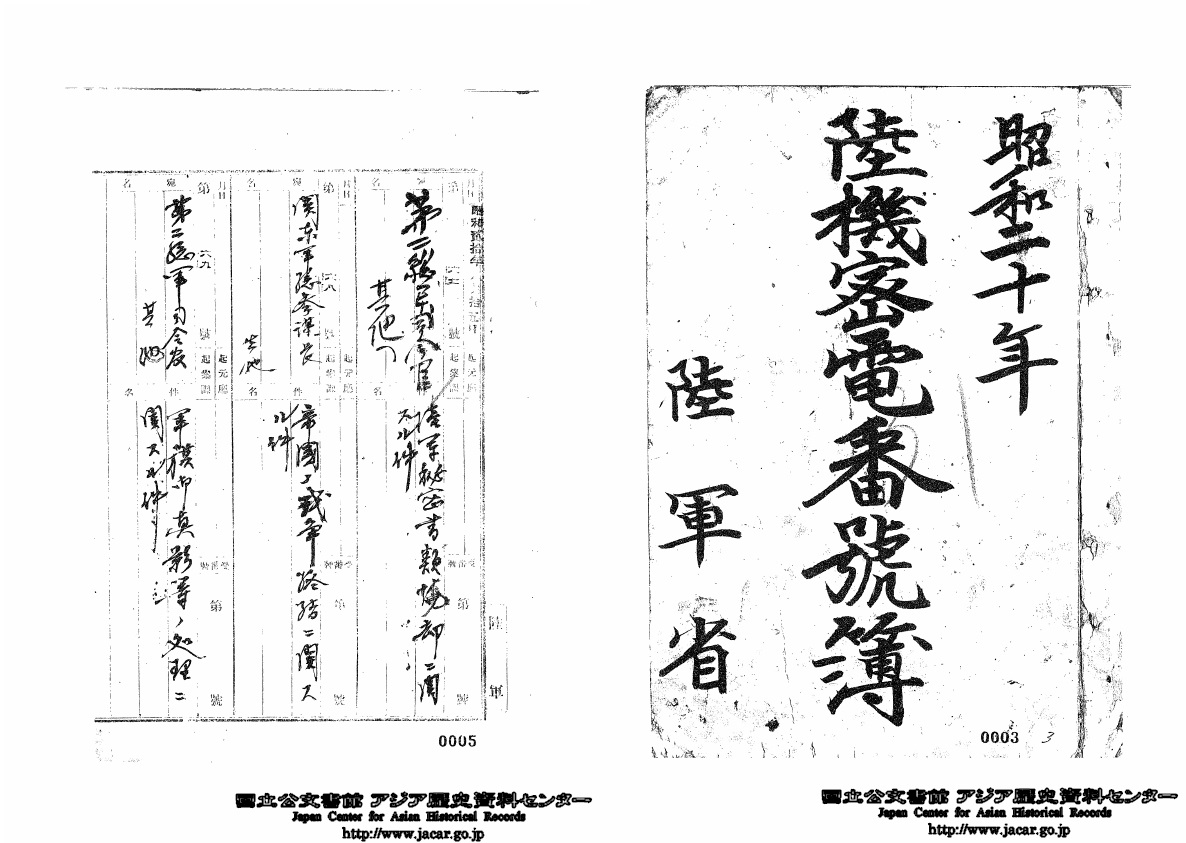 昭和二十年
陸機密電番號簿
陸軍省
0003
3
國立公文書館 アジア歴史資料センター
Japan Center for Asian Historical Records
http://www.jacar.go.jp
陸
軍
月日
第
六七
號
起元廳
起案課
宛
名
第二總軍司令官
其他
件
名
陸軍秘密書類燒却ニ関
スル件
受番號
第
號
月日
第
六八
號
起元廳
起案課
宛
名
関東軍總参課長
其他
件
名
帝國ノ戰争終結ニ関ス
ル件
受番號
第
號
第
六九
號
起元廳
起案課
宛
名
第二總軍司令官
其他
件
名
軍旗御真影等ノ処理ニ
関スル件
第
號
0005
國立公文書館 アジア歴史資料センター
Japan Center for Asian Historical Records
http://www.jacar.go.jp